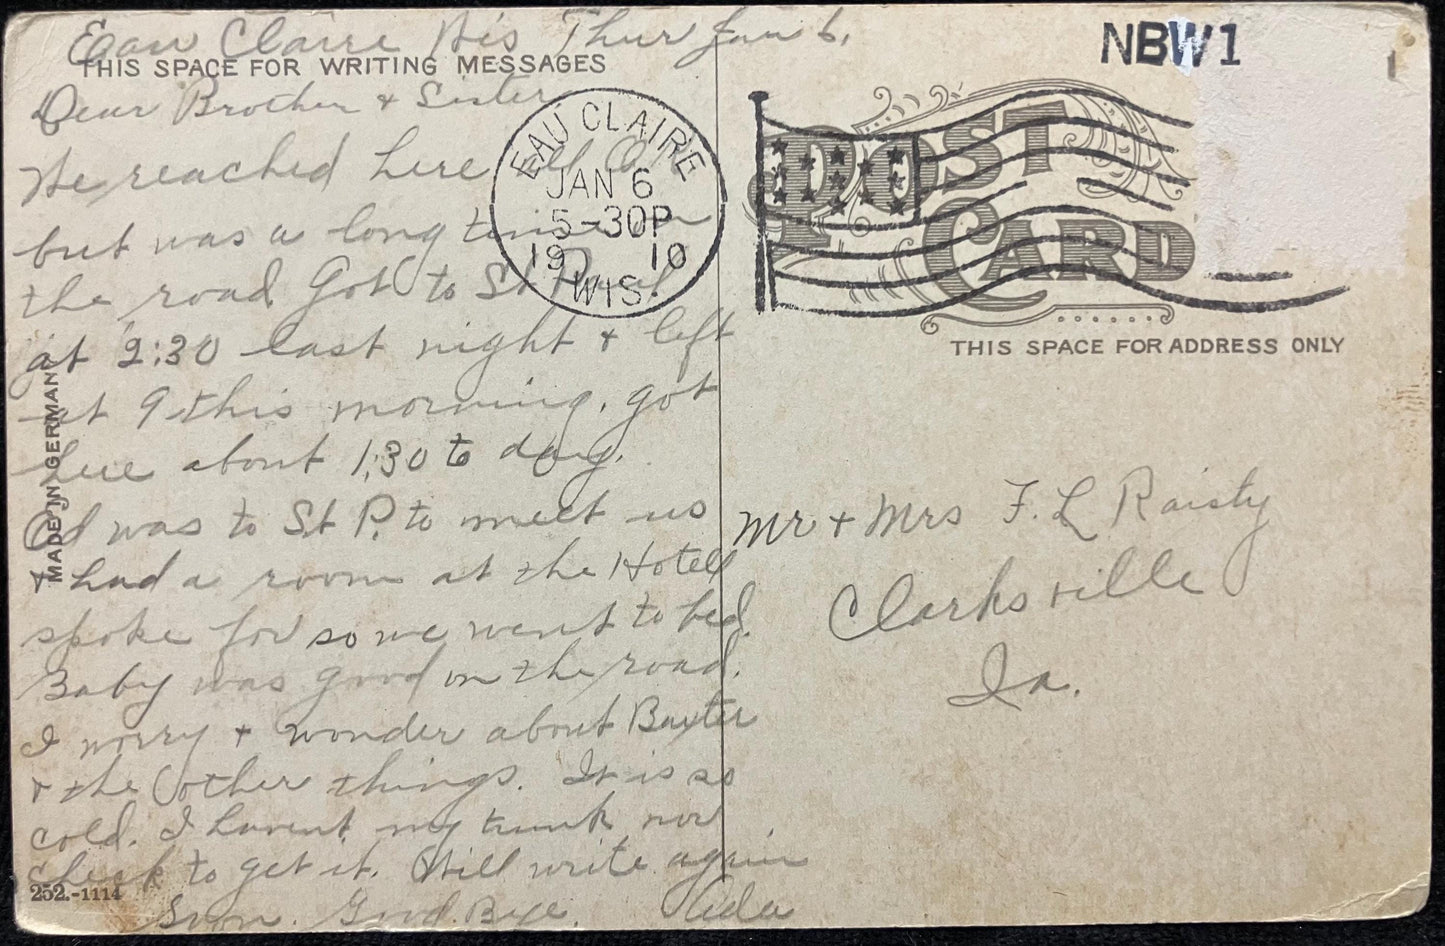 Eau Claire Wis Thur Jan 6.
THIS SPACE FOR WRITING MESSAGES
Dear Brother & Sister
We reached here all O.
but was a long time on
the road Got to St Paul
at 2:30 last night & left
at 9 this morning. got
here about 1:30 to day.
Ed was to St P. to meet us
& had a room at the Hotell
spoke for so we went to bed.
Baby was good on the road.
I worry & wonder about Baxter
& the other things. It is so
cold. I havent my trunk nor
check to get it. Will write again
Soon. Good Bye.
MADE IN GERMANY
252.-1114
EAU CLAIRE
JAN 6
5-30P
1910
WIS.
NBW1
POST
CARD
THIS SPACE FOR ADDRESS ONLY
Mr & Mrs F. L Raisty
Clarksville
Ia.